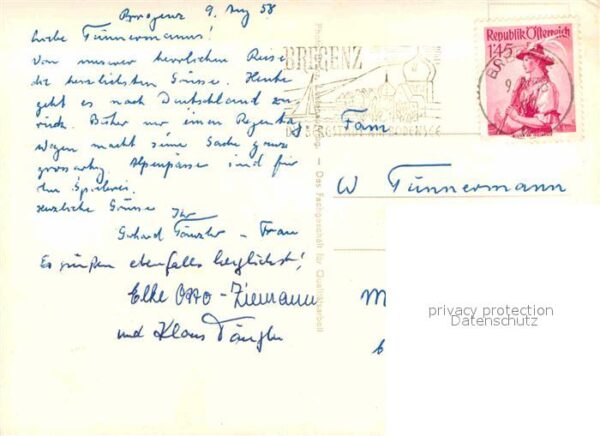 Bregenz 9. Aug 58
Liebe Tünnermanns!
Von unserer herrlichen Reise
die herzlichsten Grüsse. Heute
geht es nach Deutschland zu-
rück. Bisher nur einen Regentag
Wagen macht seine Sache ganz
grossartig. Alpenpässe sind für
ihn Spielerei.
Herzliche Grüsse Ihr
Gerhard - Frau
Es grüßen ebenfalls herzlichst!
Elke Otto-Ziemann
und Klaus
BREGENZ
Republik Österreich
1'45
Fam
W Tünnermann
M
Das Fachgeschäft für Qualitätsarbeit
privacy protection
Datenschutz